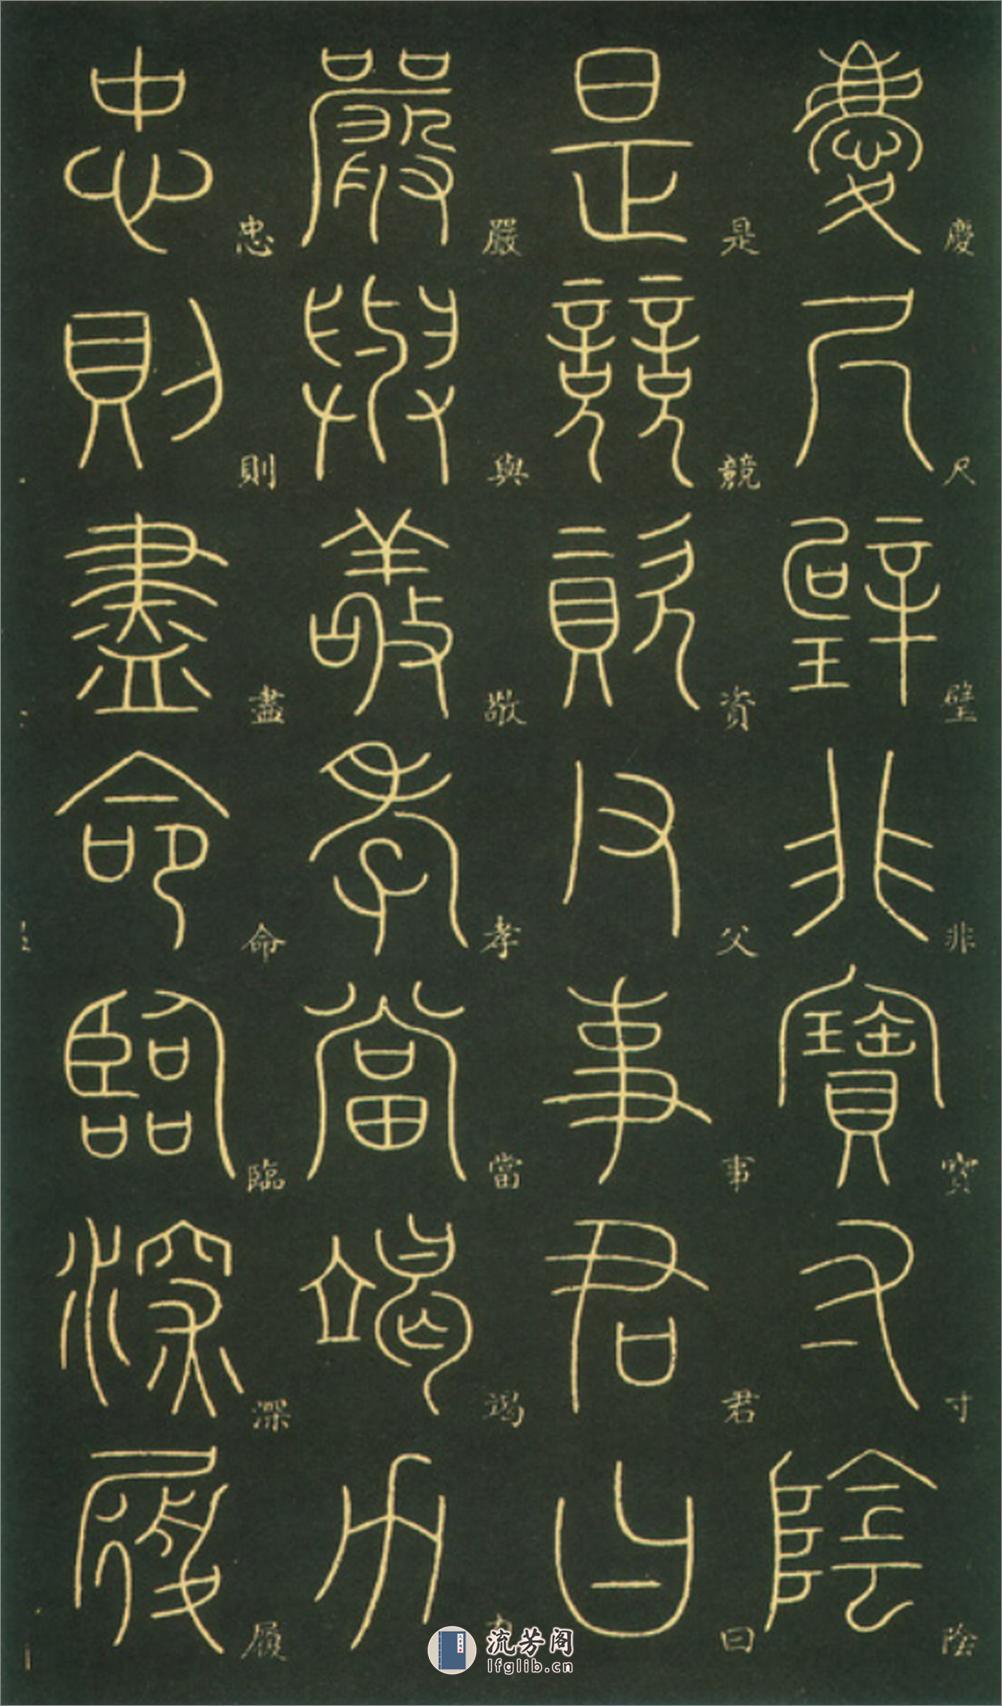 慶尺璧非寶寸陰
是競資父事君曰
嚴與敬孝當竭力
忠則盡命臨深履
慶
尺
璧
非
寶
寸
陰
是
競
資
父
事
君
曰
嚴
與
敬
孝
當
竭
力
忠
則
盡
命
臨
深
履
流芳阁
lfglib.cn